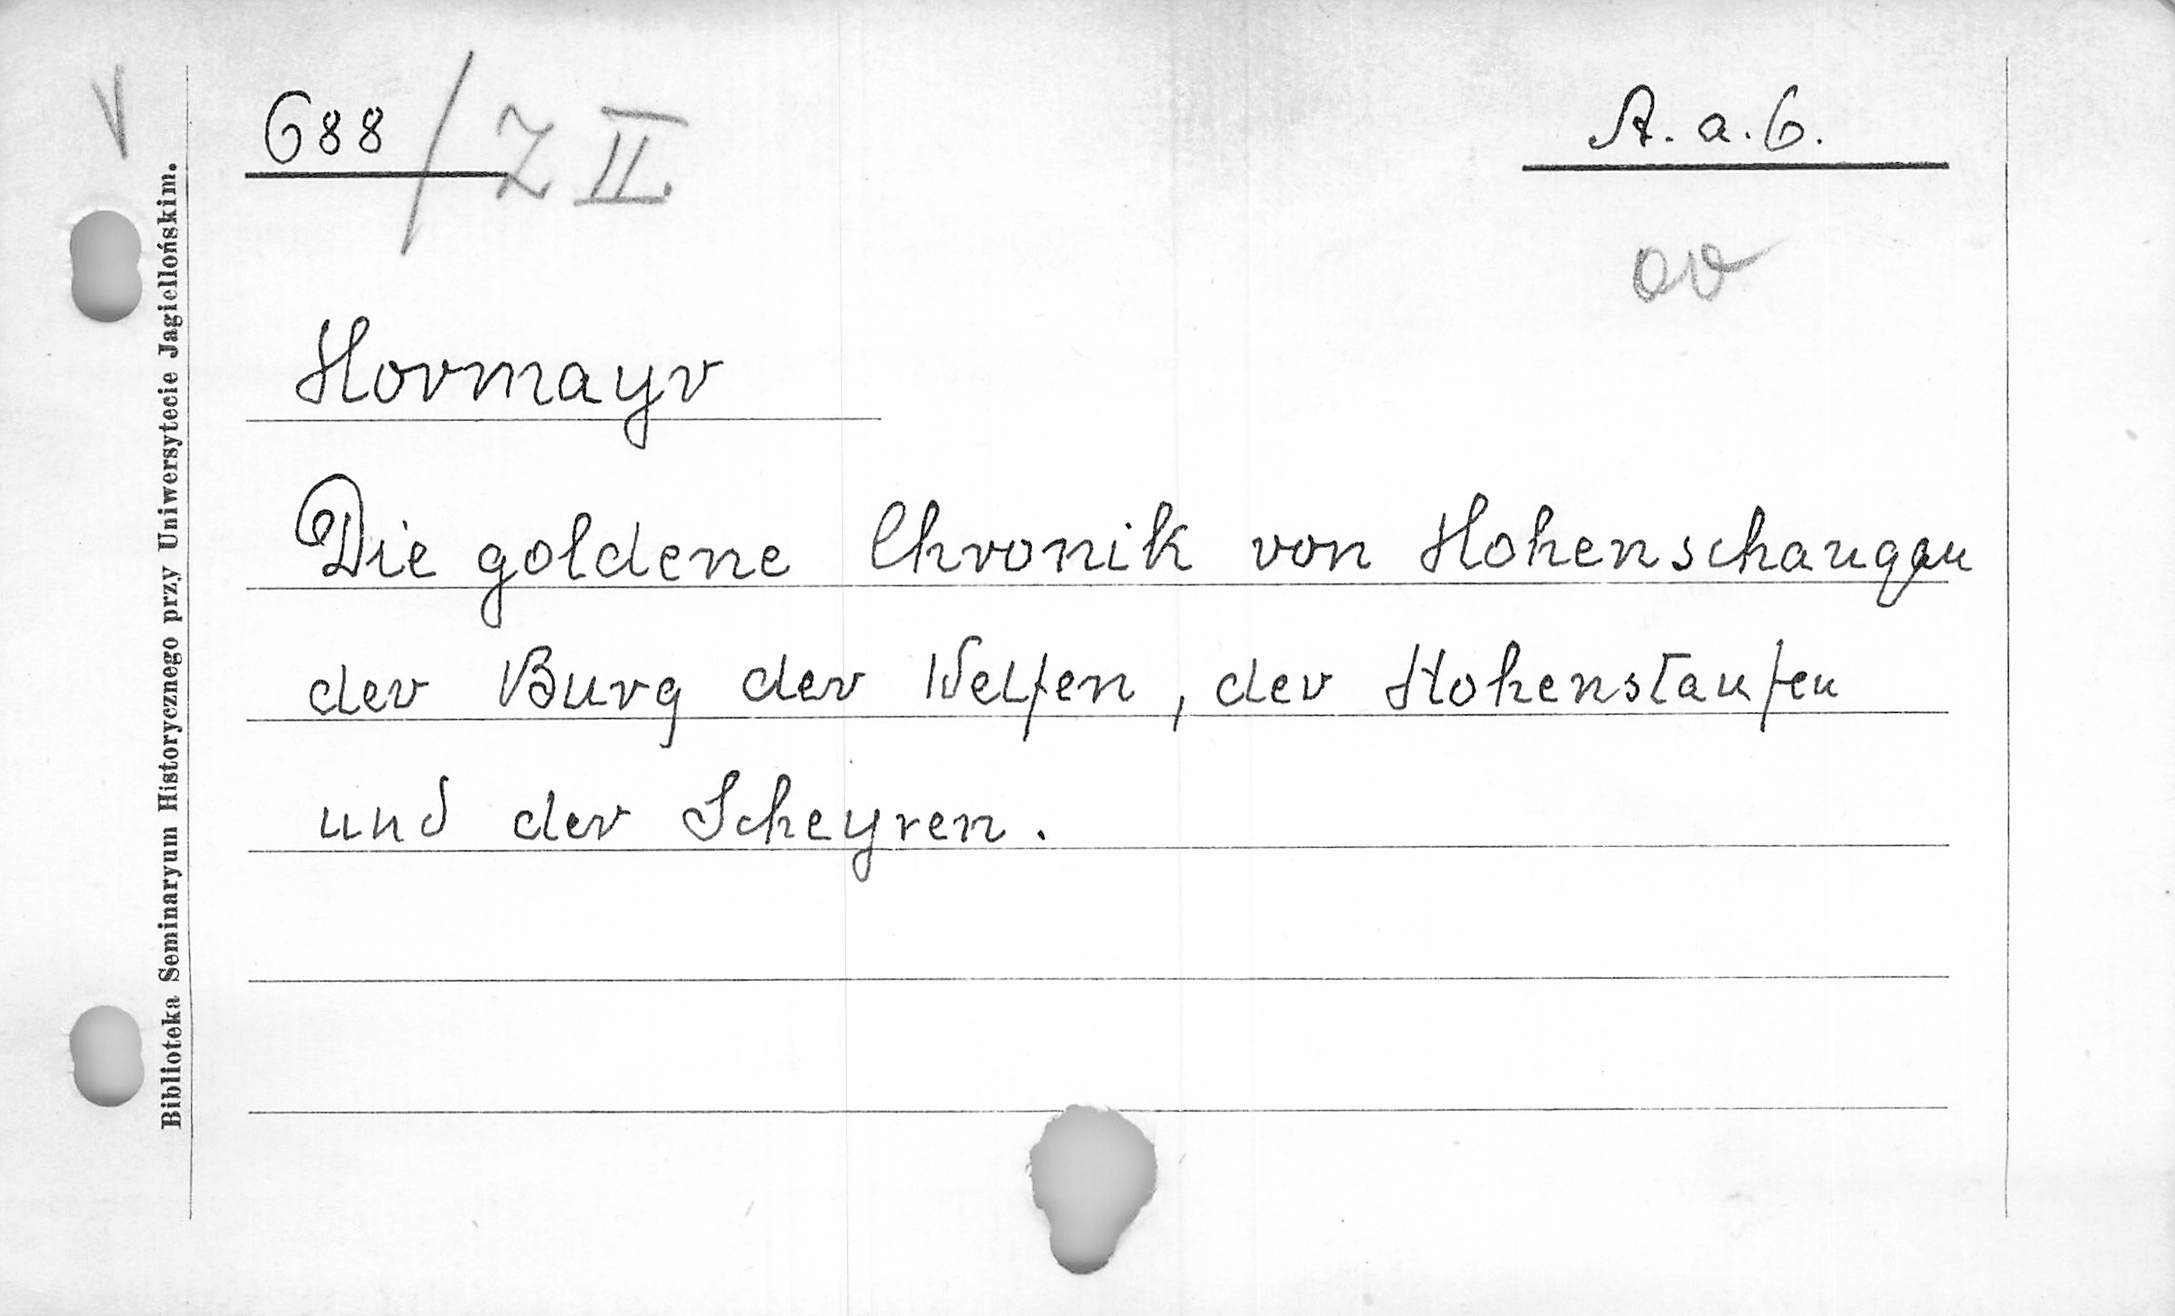 V
688 / Z II
A. a. 6.
ov
Hormayr
Die goldene Chronik von Hohenschaugau
der Burg der Welfen, der Hohenstaufen
und der Scheyren.
Biblioteka Seminaryum Historycznego przy Uniwersytecie Jagiellońskim.